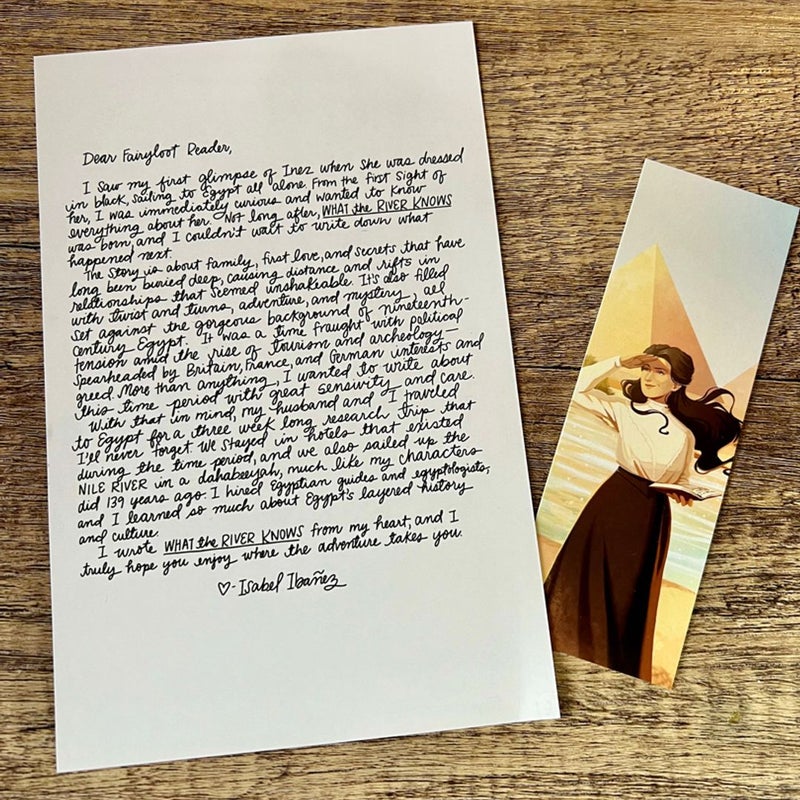 Dear Fairyloot Reader,
I saw my first glimpse of Inez when she was dressed
in black, sailing to Egypt all alone. From the first sight of
her, I was immediately curious and wanted to know
everything about her. Not long after, WHAT the RIVER KNOWS
was born, and I couldn't wait to write down what
happened next.
The story is about family, first love, and secrets that have
long been buried deep, causing distance and rifts in
relationships that seemed unshakeable. It's also filled
with twist and turns, adventure, and mystery all
set against the gorgeous background of nineteenth-
century Egypt. It was a time fraught with political
tension amid the rise of tourism and archeology—
spearheaded by Britain, France, and German interests and
greed. More than anything, I wanted to write about
this time period with great sensivity and care.
With that in mind, my husband and I traveled
to Egypt for a three week long research trip that
I'll never forget. We stayed in hotels that existed
during the time period, and we also sailed up the
NILE RIVER in a dahabeeyah, much like my characters
did 139 years ago. I hired Egyptian guides and egyptologists,
and I learned so much about Egypt's layered history
and culture.
I wrote WHAT the RIVER KNOWS from my heart, and I
truly hope you enjoy where the adventure takes you.
♡-Isabel Ibañez